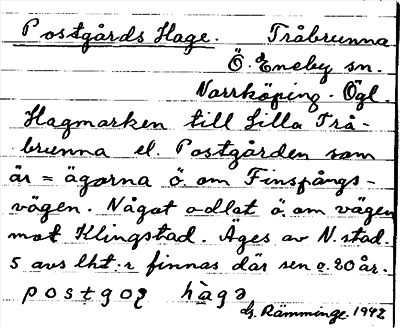 Postgårds Hage. Tråbrunna
Ö. Eneby sn.
Norrköping. Ögl.
Hagmarken till Lilla Trå-
brunna el. Postgården som
är = ägorna ö. om Finspångs-
vägen. Något odlat ö. om vägen
mot Klingstad. Äges av N. stad.
5 avs lht.r finnas där sen c. 20 år.
G. Rämminge. 1942